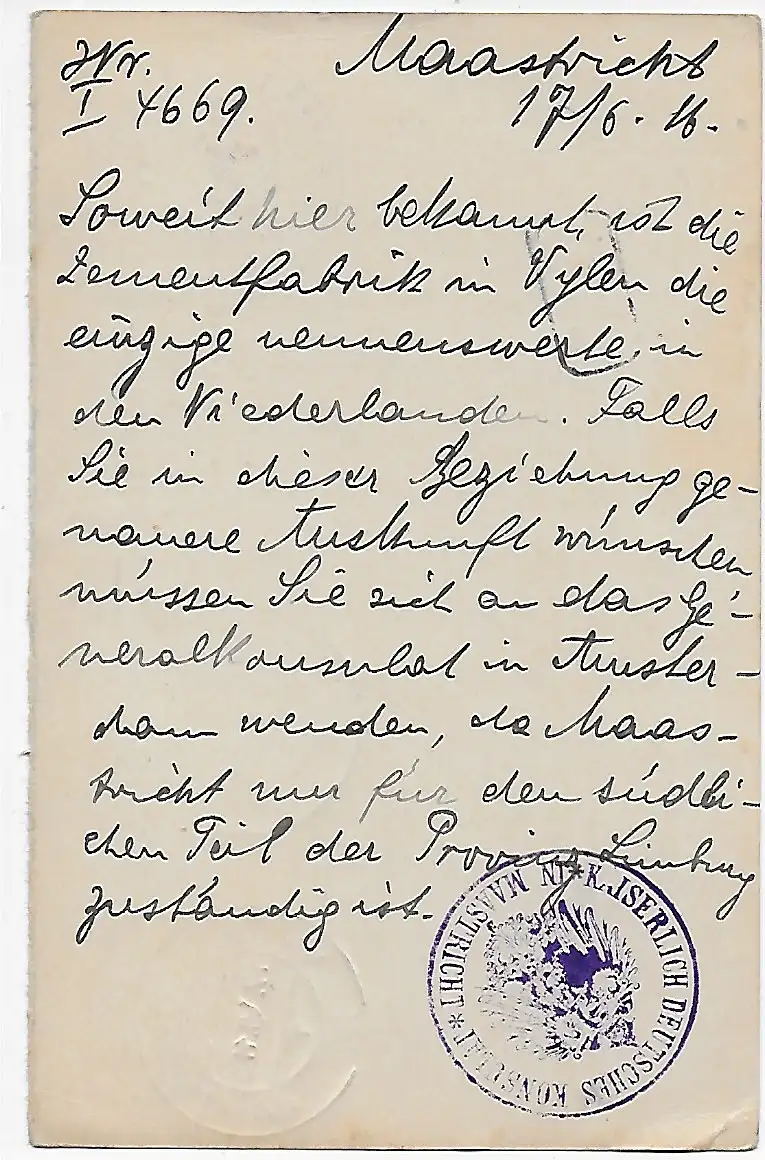 JNr. Maastricht
I 4669. 17/6. 16.
Soweit hier bekannt, ist die
Zementfabrik in Vylen die
einzige nennenswerte in
den Niederlanden. Falls
Sie in dieser Beziehung ge-
nauere Auskunft wünschen
müssen Sie sich an das Ge-
neralkonsulat in Amster-
dam wenden, da Maas-
tricht nur für den südli-
chen Teil der Provinz Limburg
zuständig ist.
KAISERLICH DEUTSCHES KONSULAT * IN MAASTRICHT *